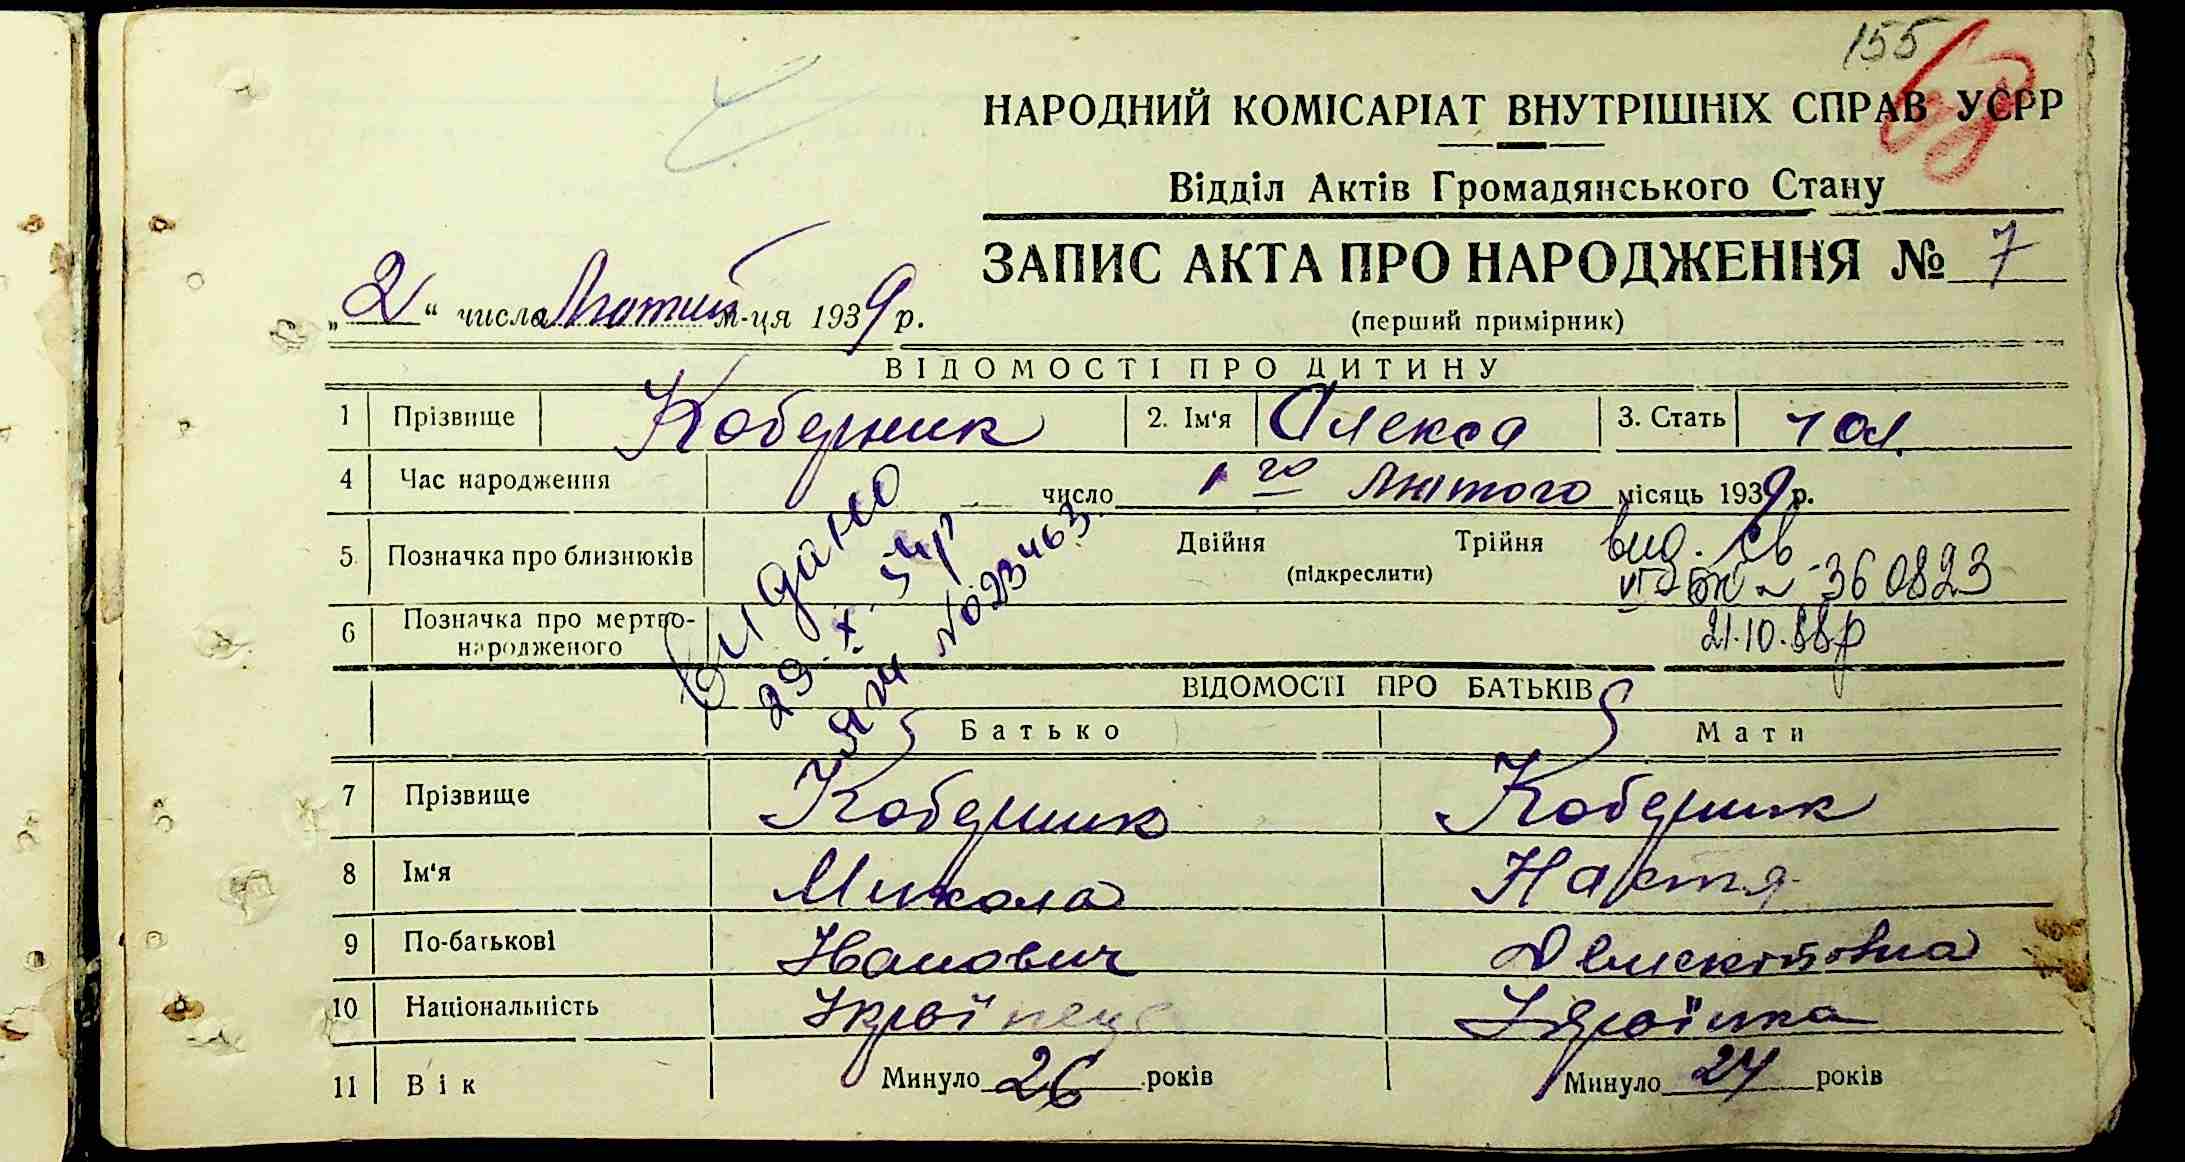 155
НАРОДНИЙ КОМІСАРІАТ ВНУТРІШНІХ СПРАВ УСРР
Відділ Актів Громадянського Стану
ЗАПИС АКТА ПРО НАРОДЖЕННЯ № 7
„ 2 “ числа Лютий м-ця 1939 р.
(перший примірник)
ВІДОМОСТІ ПРО ДИТИНУ
1 Прізвище Коберник 2. Ім‘я Олекса 3. Стать чол.
4 Час народження число 1го Лютого місяць 1939 р.
5 Позначка про близнюків Двійня Трійня
(підкреслити)
вид. св
360823
21.10.88р
6 Позначка про мертво-
народженого
Видано
29.X.54р
ЯГ № 023463
ВІДОМОСТІ ПРО БАТЬКІВ
Батько Мати
7 Прізвище Коберник Коберник
8 Ім‘я Микола Настя
9 По-батькові Иванович
10 Національність Українець Українка
11 Вік Минуло 26 років Минуло 24 років